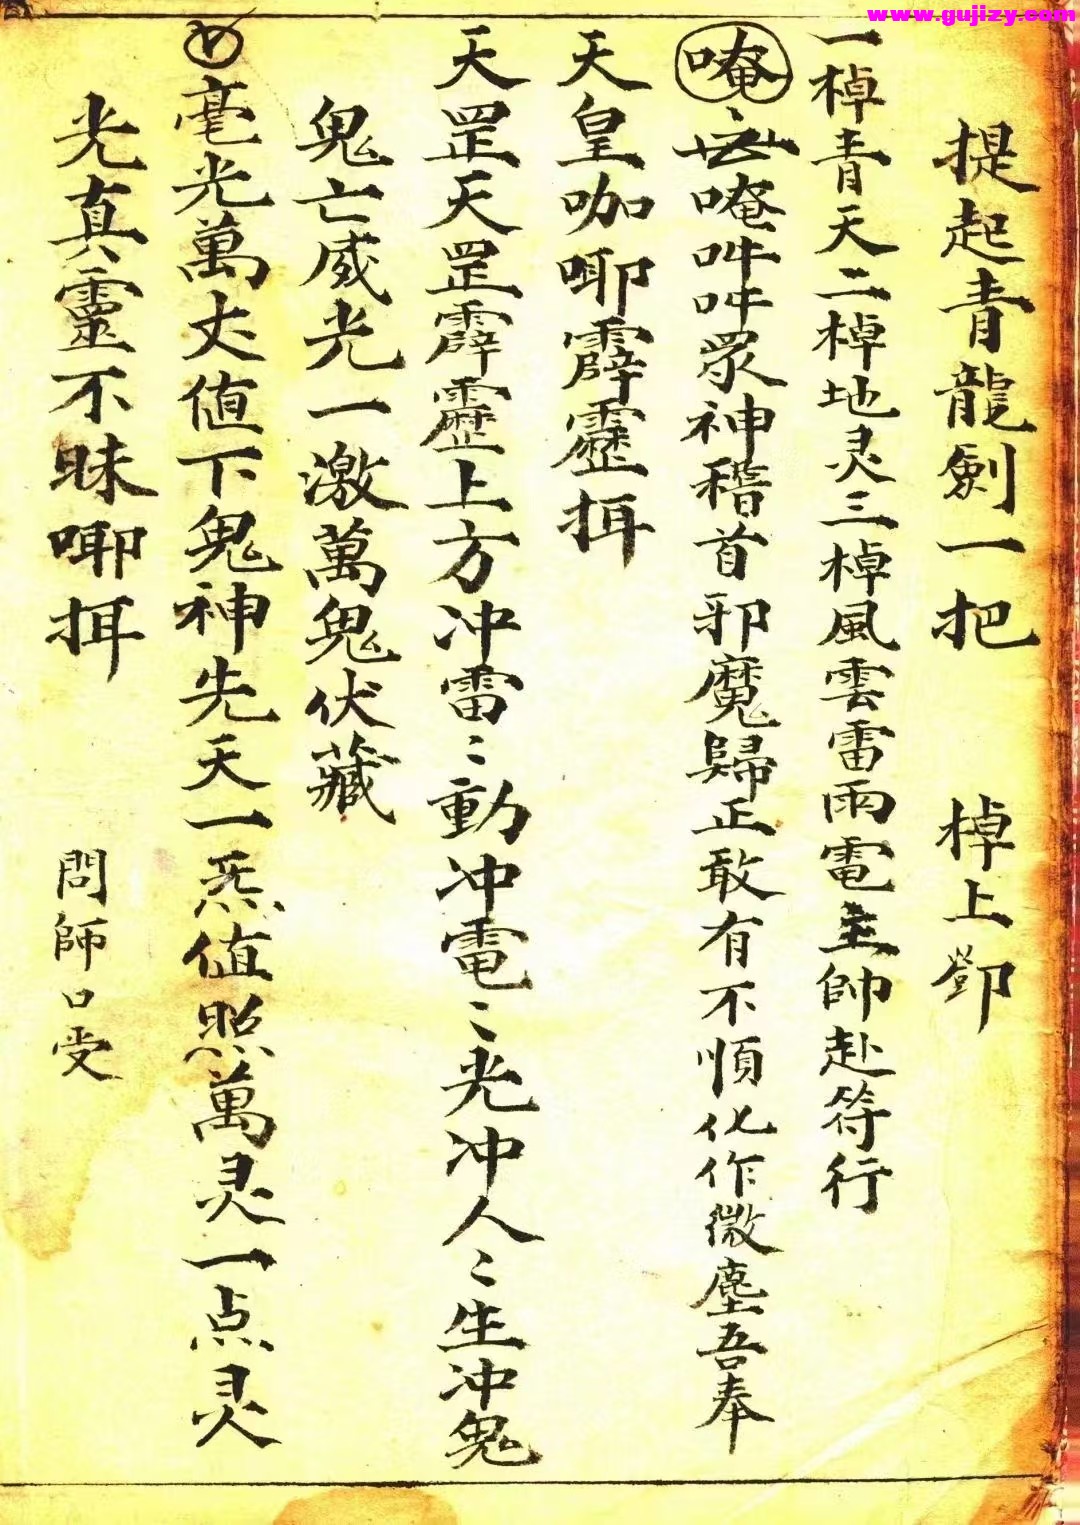 www.gujizy.com
提起青龍劍一把 棹上鄧
一棹青天二棹地灵三棹風雲雷雨電主帥赴符行
唵 唵吽吽眾神稽首邪魔歸正敢有不順化作微塵吾奉
天皇咖唧霹靂揖
天罡天罡霹靂上方冲雷〻動冲電〻光冲人〻生冲鬼
鬼亡威光一激萬鬼伏藏
毫光萬丈値下鬼神先天一炁値照萬灵一点灵
光真靈不昧唧揖
問師口受